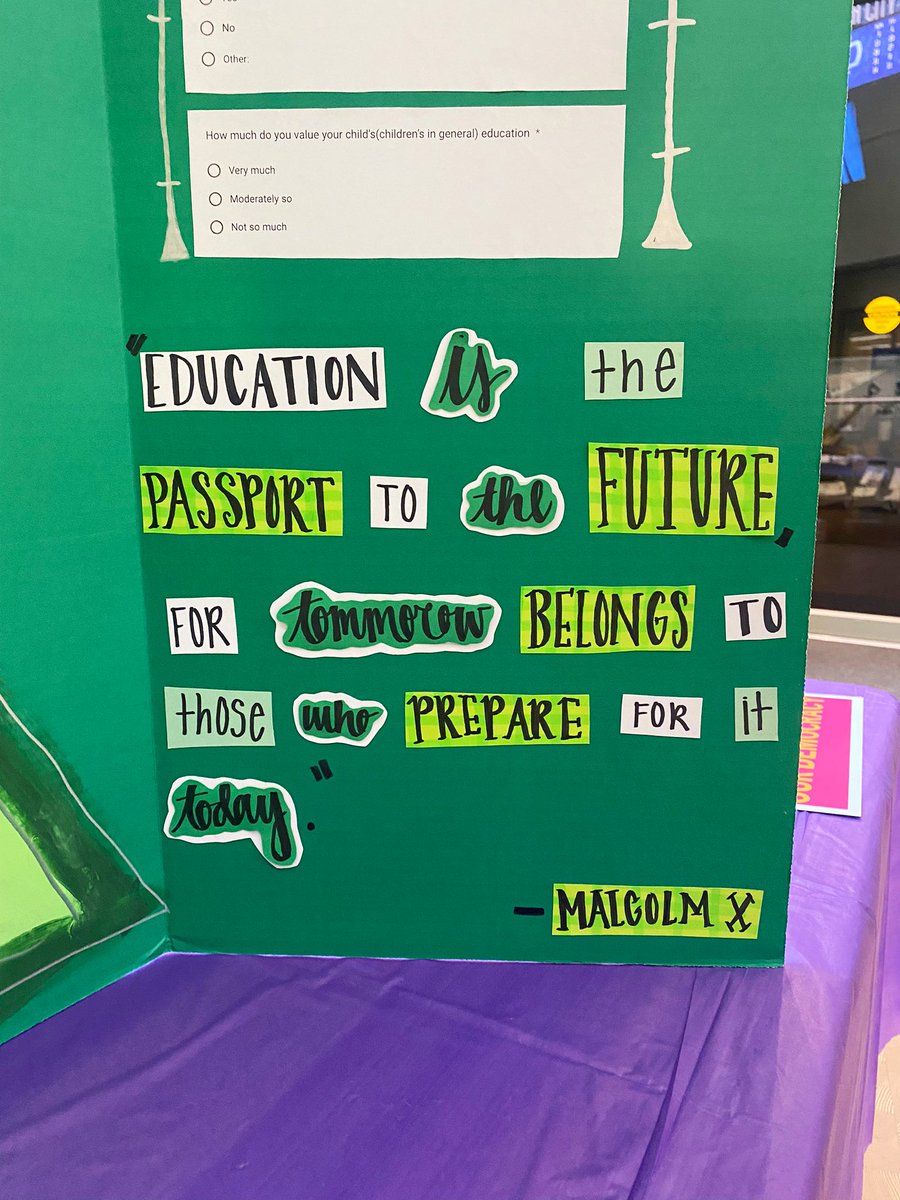 Yes
No
Other:
How much do you value your child's(children's in general) education *
Very much
Moderately so
Not so much
"EDUCATION is the
PASSPORT TO the FUTURE,
FOR tommorow BELONGS TO
those who PREPARE FOR it
today."
- MALCOLM X
OUR DEMOCRACY